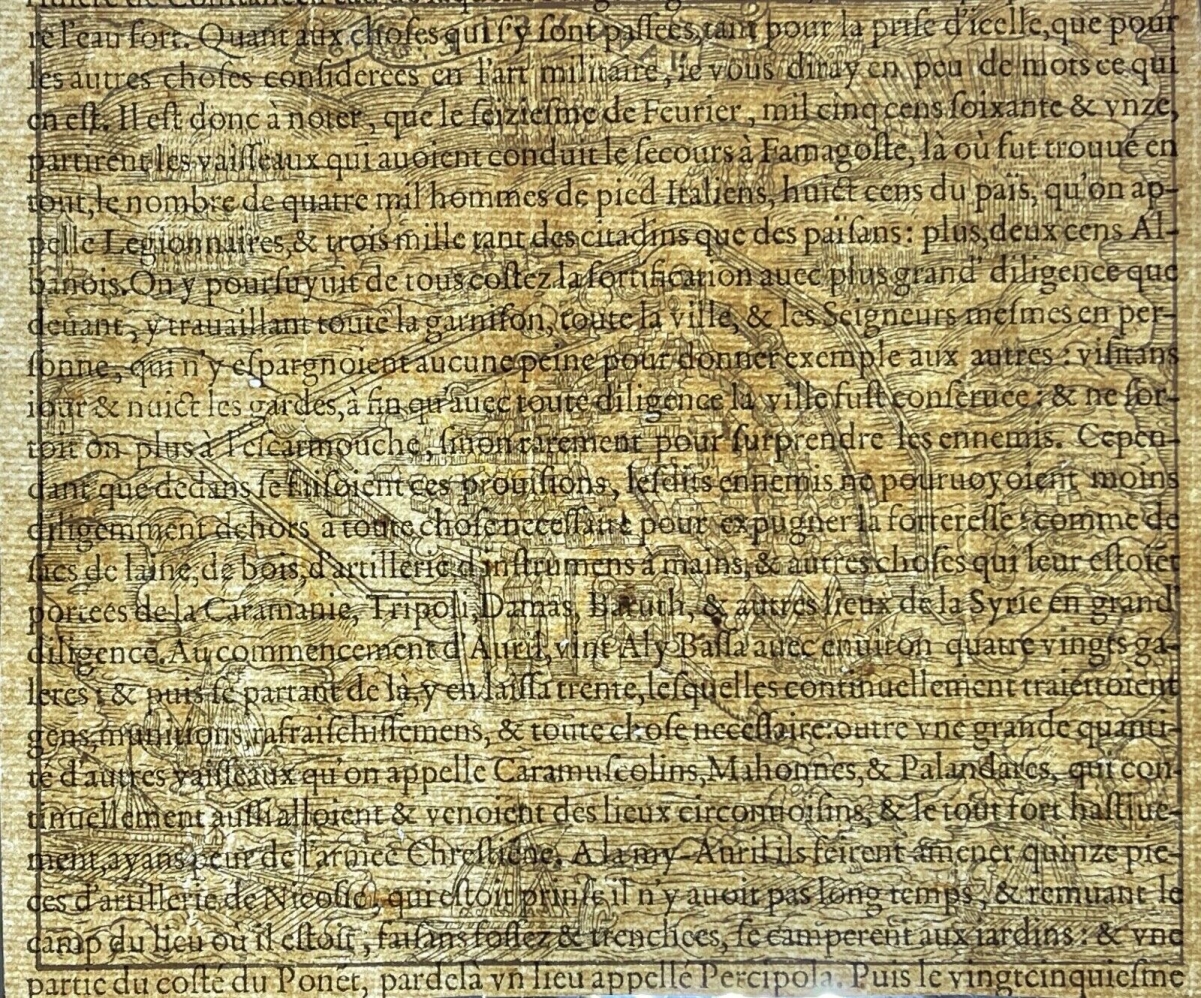 re l'eau fort. Quant aux choſes qui ſ'y ſont paſſees, tant pour la priſe d'icelle, que pour
les autres choſes conſiderees en l'art militaire, ie vous diray en peu de mots ce qui
en eſt. Il eſt donc à noter, que le ſeizieſme de Feurier, mil cinq cens ſoixante & vnze,
partirent les vaiſſeaux qui auoient conduit le ſecours à Famagoſte, là où fut trouué en
tout, le nombre de quatre mil hommes de pied Italiens, huict cens du païs, qu'on ap-
pelle Legionnaires, & trois mille tant des citadins que des païſans: plus, deux cens Al-
banois. On y pourſuyuit de tous coſtez la fortification auec plus grand' diligence que
deuant, y trauaillant toute la garniſon, toute la ville, & les Seigneurs meſmes en per-
ſonne, qui n'y eſpargnoient aucune peine pour donner exemple aux autres: viſitans
iour & nuict les gardes, à fin qu'auec toute diligence la ville fuſt conſeruee: & ne ſor-
toit on plus à l'eſcarmouche, ſinon rarement pour ſurprendre les ennemis. Cepen-
dant que dedans ſe faiſoient ces prouiſions, leſdits ennemis ne pouruoyoient moins
diligemment dehors à toute choſe neceſſaire pour expugner la fortereſſe: comme de
ſacs de laine, de bois, d'artillerie, d'inſtrumens à mains, & autres choſes qui leur eſtoiẽt
portees de la Caramanie, Tripoli, Damas, Baruth, & autres lieux de la Syrie en grand'
diligence. Au commencement d'Auril, vint Aly Baſſa auec enuiron quatre vingts ga-
leres: & puis ſe partant de là, y en laiſſa trente, leſquelles continuellement traiettoient
gens, munitions, rafraiſchiſſemens, & toute choſe neceſſaire: outre vne grande quanti-
té d'autres vaiſſeaux qu'on appelle Caramuſcolins, Mahonnes, & Palandares, qui con-
tinuellement auſſi alloient & venoient des lieux circonuoiſins, & le tout fort haſtiue-
ment, ayans peur de l'armee Chreſtiẽne. A la my-Auril ils feirent amener quinze pie-
ces d'artillerie de Nicoſſe, qui eſtoit prinſe il n'y auoit pas long temps, & remuant le
camp du lieu où il eſtoit, faiſans foſſez & trenchees, ſe camperent aux iardins: & vne
partie du coſté du Ponẽt, pardelà vn lieu appellé Percipola. Puis le vingtcinquieſme